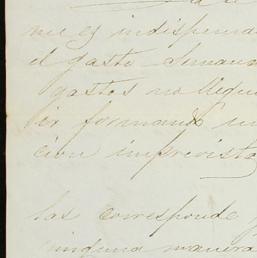 me es indispensa
el gasto semana
gastos no llegu
lir formando un
cion imprevista,
las corresponde
ninguna manera